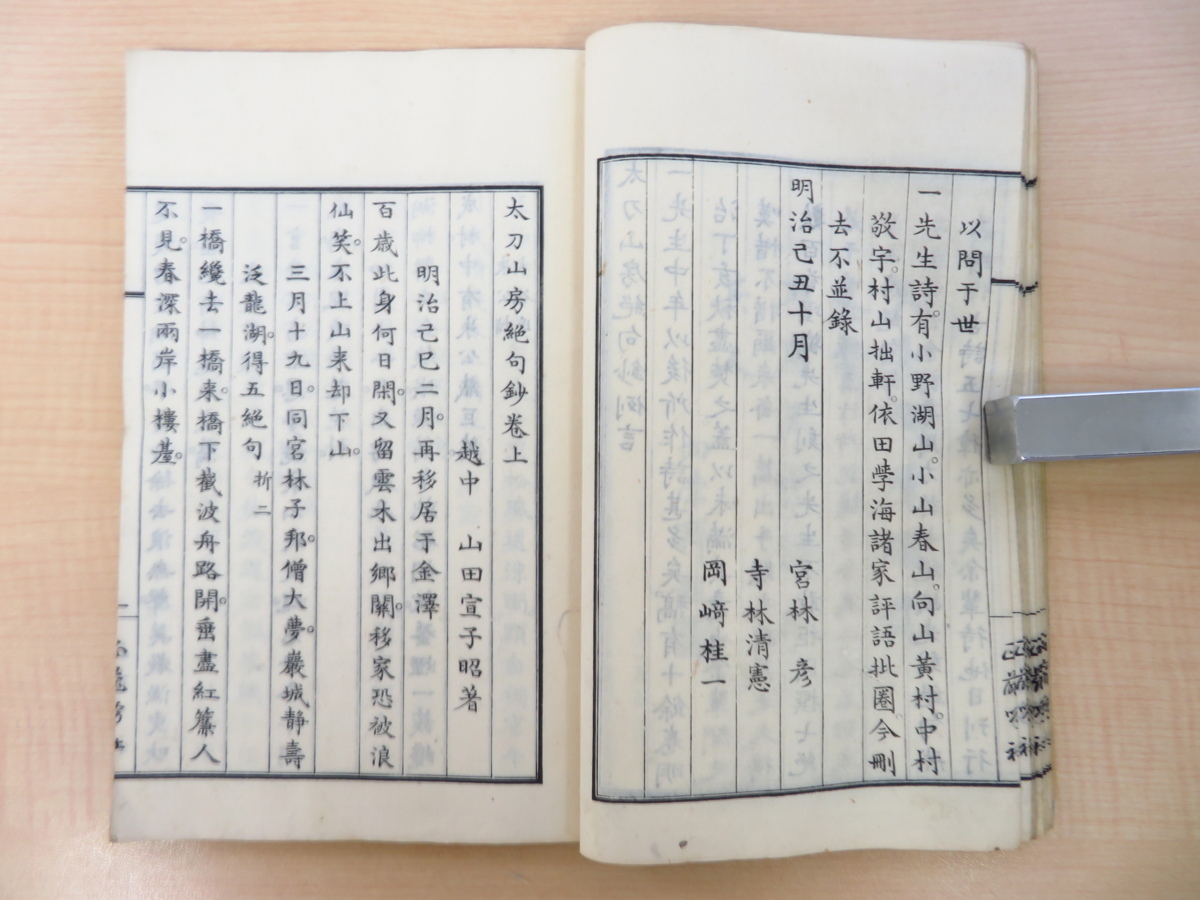 以問于世
一先生詩。有小野湖山。小山春山。向山黄村。中村
敬字。村山拙軒。依田學海諸家評語批圈。今刪
去不並錄
明治己丑十月　宮林　彦
寺林清憲
岡﨑桂一
太刀山房絕句鈔卷上
越中　山田宣子昭著
明治己巳二月。再移居于金澤
百歳此身何日閑。又留雲木出鄉關。移家恐被浪
仙笑。不上山来却下山。
三月十九日。同宮林子邦。僧大夢。巖城静壽
泛龍湖。得五絕句 折二
一橋纔去一橋来。橋下截波舟路開。垂盡紅簾人
不見。春深兩岸小樓䑓。